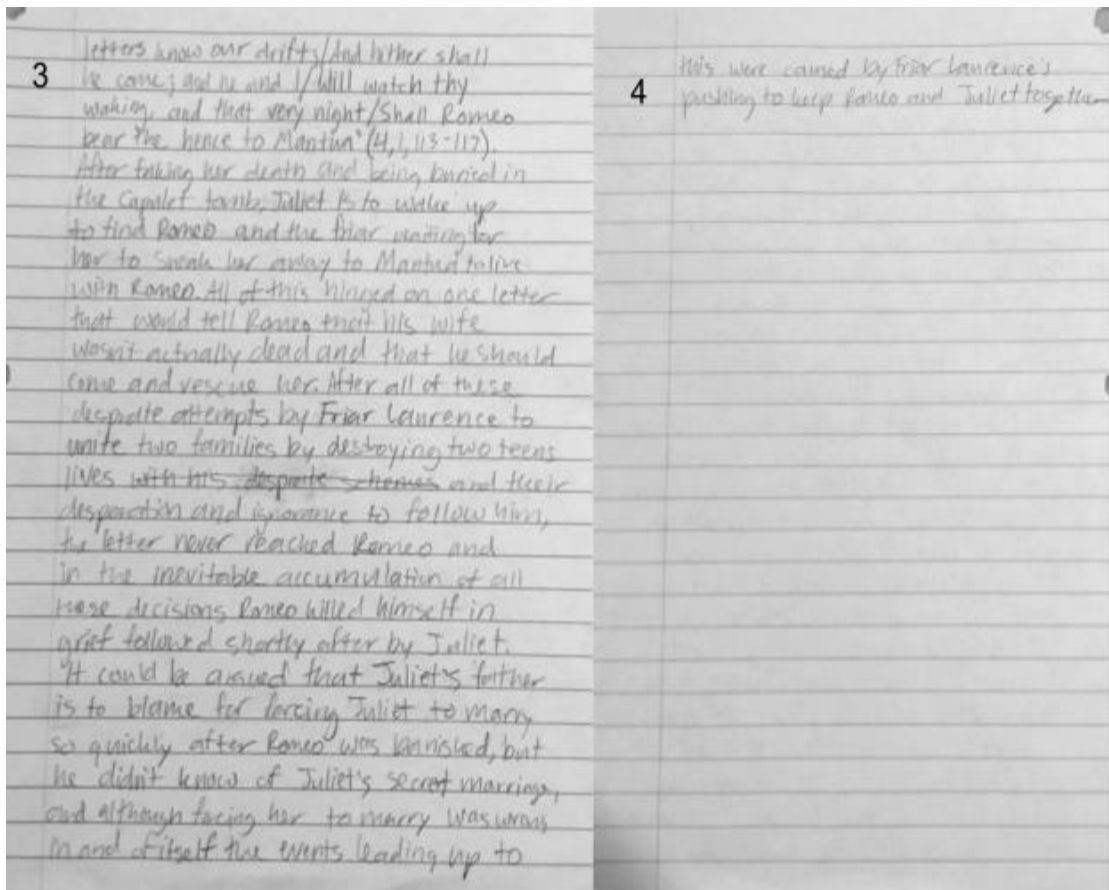 3
letters know our drift,/And hither shall
he come; and he and I/Will watch thy
waking, and that very night/Shall Romeo
bear the hence to Mantua" (4,1,113-117).
After faking her death and being buried in
the Capulet tomb, Juliet is to wake up
to find Romeo and the friar waiting for
her to sneak her away to Mantua to live
with Romeo. All of this hinged on one letter
that would tell Romeo that his wife
wasn't actually dead and that he should
come and rescue her. After all of these
desprate attempts by Friar Laurence to
unite two families by destroying two teens
lives with his desprate schemes and their
desparation and ignorance to follow him,
the letter never reached Romeo and
in the inevitable accumulation of all
these decisions Romeo killed himself in
grief followed shortly after by Juliet.
It could be argued that Juliet's father
is to blame for forcing Juliet to marry
so quickly after Romeo was bannished, but
he didn't know of Juliet's secret marriage,
and although facing her to marry was wrong
in and of itself the events leading up to
4
this were caused by Friar Laurence's
pushing to keep Romeo and Juliet together